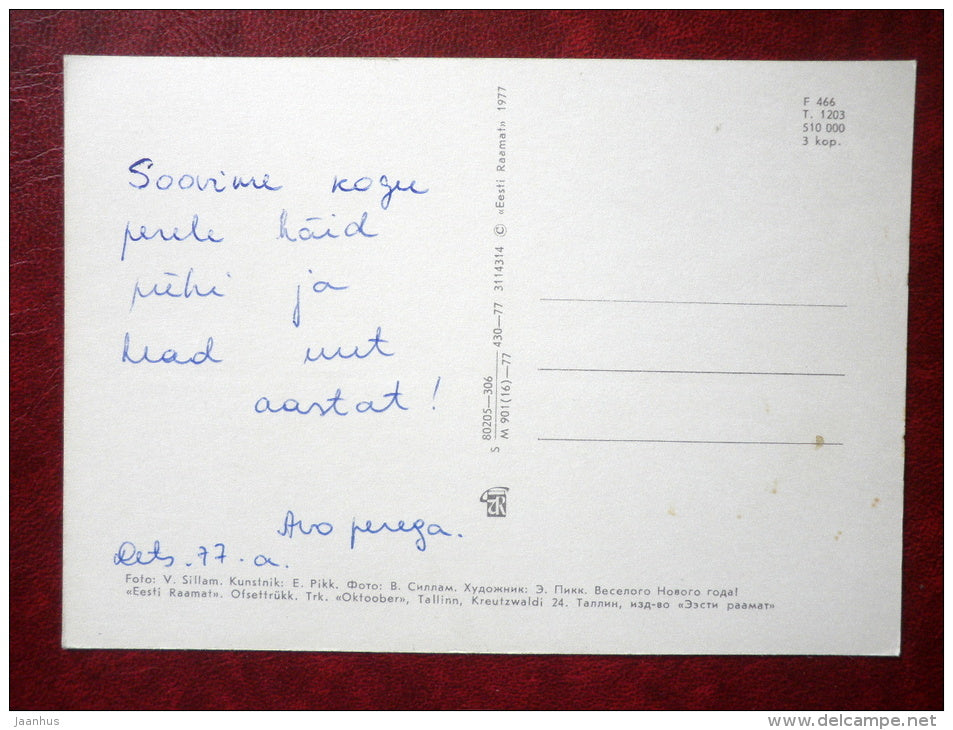 Soovime kogu
perele häid
pühi ja
head uut
aastat!
Avo perega.
Dets. 77. a.
Foto: V. Sillam. Kunstnik: E. Pikk. Фото: В. Силлам. Художник: Э. Пикк. Веселого Нового года!
«Eesti Raamat». Ofsettrükk. Trk. «Oktoober», Tallinn, Kreutzwaldi 24. Таллин, изд-во «Ээсти раамат»
S 80205—306 430—77 3114314 © «Eesti Raamat» 1977
M 901(16)—77
F 466
T. 1203
510 000
3 kop.
jaanhus
delcampe.net